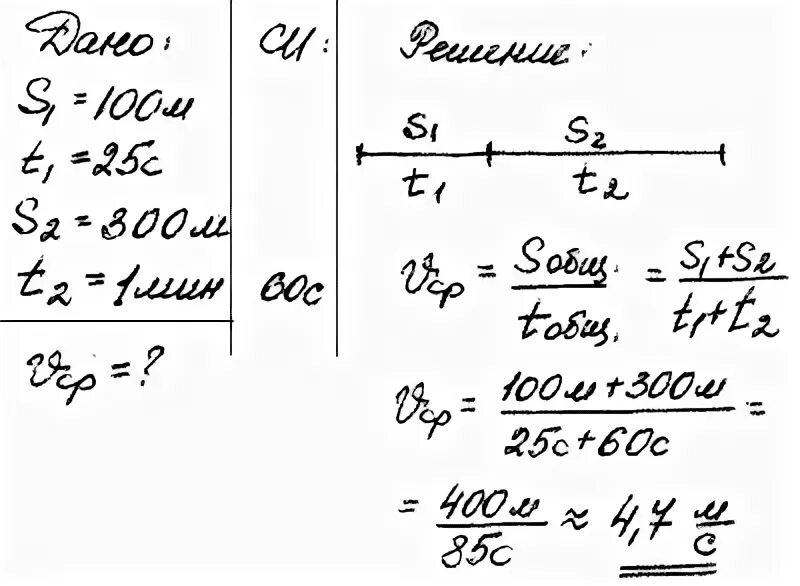 Дано:
S₁ = 100м
t₁ = 25с
S₂ = 300м
t₂ = 1мин
υср = ?
СИ:
60с
Решение:
S₁ S₂
t₁ t₂
υср = Sобщ. / tобщ. = S₁+S₂ / t₁+t₂
υср = 100м+300м / 25с+60с =
= 400м / 85с ≈ 4,7 м/с